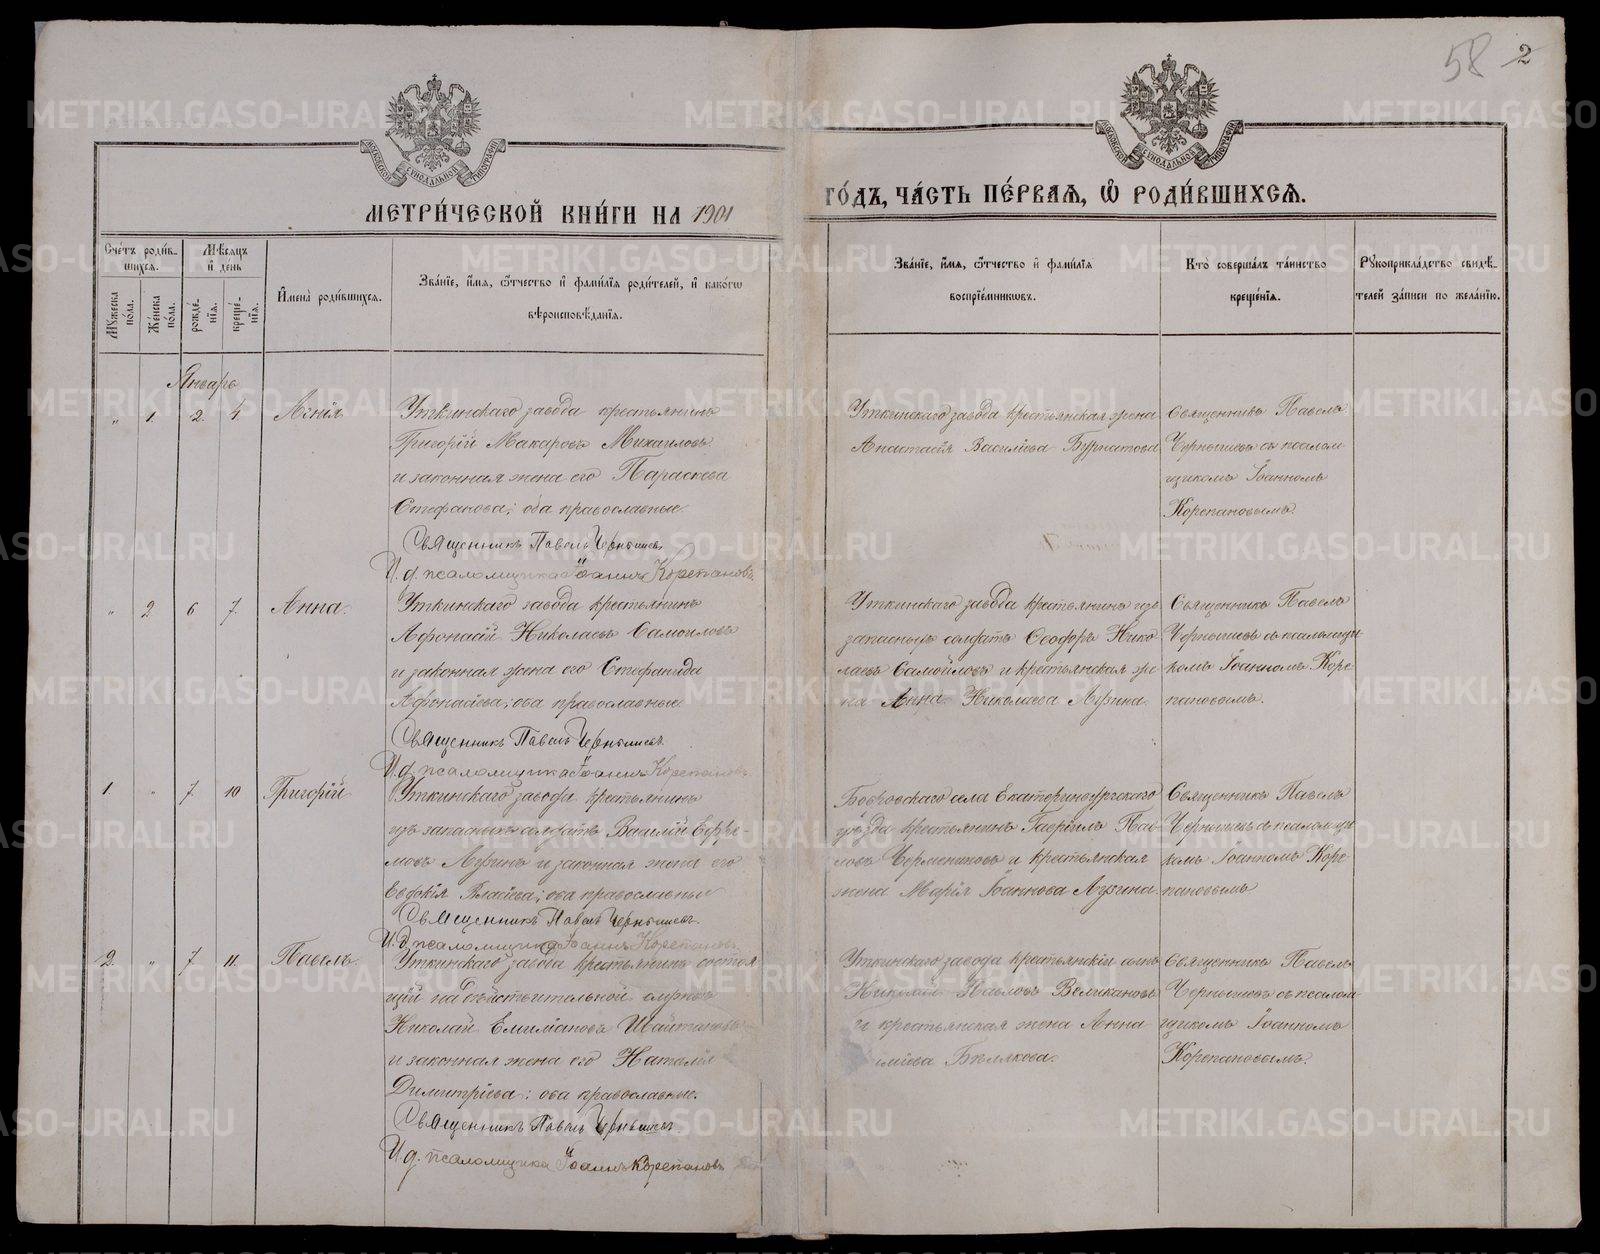 58 2
МЕТРИ́ЧЕСКОЙ КНИ́ГИ НА 1901
ГО́ДЪ, ЧА́СТЬ ПЕ́РВАѦ, Ѽ РОДИ́ВШИХСѦ.
Сче́тъ роди́в-
шихся.
Мѣ́сяцъ
и де́нь
Му́жеска
по́ла.
Же́нска
по́ла.
рожде́-
нїя.
креще́-
нїя.
Имена̀ роди́вшихся.
Зва́нїе, и́мя, ѻ҆́тчество и фами́лїя роди́телей, и како́гѡ
вѣроисповѣ́данїя.
Зва́нїе, и́мя, ѻ҆́тчество и фами́лїя
воспрїе́мниковъ.
Кто̀ соверша́лъ та́инство
креще́нїя.
Рꙋкоприкла́дство свидѣ́-
телей за́писи по жела́нїю.
Январь
„ 1. 2. 4 Агнія
Уткинскаго завода крестьянинъ
Григорій Макаровъ Михаиловъ
и законная жена его Параскева
Стефанова; оба православные.
Священникъ Павелъ Чернышевъ
И. д. псаломщика Іоаннъ Корепановъ
Уткинскаго завода крестьянская жена
Анастасія Василіева Бурматова
Священникъ Павелъ
Чернышевъ съ псалом
щикомъ Іоанномъ
Корепановымъ.
„ 2 6 7. Анна.
Уткинскаго завода крестьянинъ
Афонасій Николаевъ Самоиловъ
и законная жена его Стефанида
Афонасіева; оба православные
Священникъ Павелъ Чернышевъ
И. д. псаломщика Іоаннъ Корепановъ
Уткинскаго завода крестьянинъ изъ
запасныхъ солдатъ Ѳеодоръ Нико
лаевъ Самойловъ и крестьянская же
на Анна Николаева Лузина.
Священникъ Павелъ
Чернышевъ съ псаломщи
комъ Іоанномъ Коре
пановымъ.
1. „ 7. 10 Григорій
Уткинскаго завода крестьянинъ
изъ запасныхъ солдатъ Василій Ефре-
мовъ Лузинъ и законная жена его
Евдокія Власіева; оба православные
Священникъ Павелъ Чернышевъ.
И. д. псаломщика Іоаннъ Корепановъ
Бобровскаго села Екатеринбургскаго
уѣзда крестьянинъ Гавріилъ Пав-
ловъ Черемениковъ и крестьянская
жена Марія Іоаннова Лузина.
Священникъ Павелъ
Чернышевъ съ псаломщи
комъ Іоанномъ Коре
пановымъ
2. „ 7. 11. Павелъ.
Уткинскаго завода крестьянинъ состоя
щій на дѣйствительной службѣ
Николай Емиліановъ Шайтановъ
и законная жена его Наталія
Димитріева; оба православные.
Священникъ Павелъ Чернышевъ
И. д. псаломщика Іоаннъ Корепановъ
Уткинскаго завода крестьянскій сынъ
Николай Павловъ Великановъ
и крестьянская жена Анна
Бѣлякова.
Священникъ Павелъ
Чернышевъ съ псалом
щикомъ Іоанномъ
Корепановымъ.
METRIKI.GASO-URAL.RU